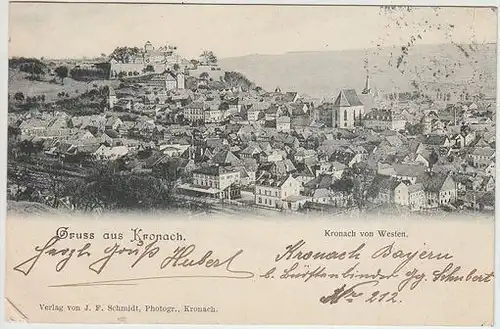 Gruss aus Kronach.
Kronach von Westen.
Herzl Gruß Hubert
Kronach Bayern
b. Bürstenbinder Gg. Schubert
Nr 212.
Verlag von J. F. Schmidt, Photogr., Kronach.